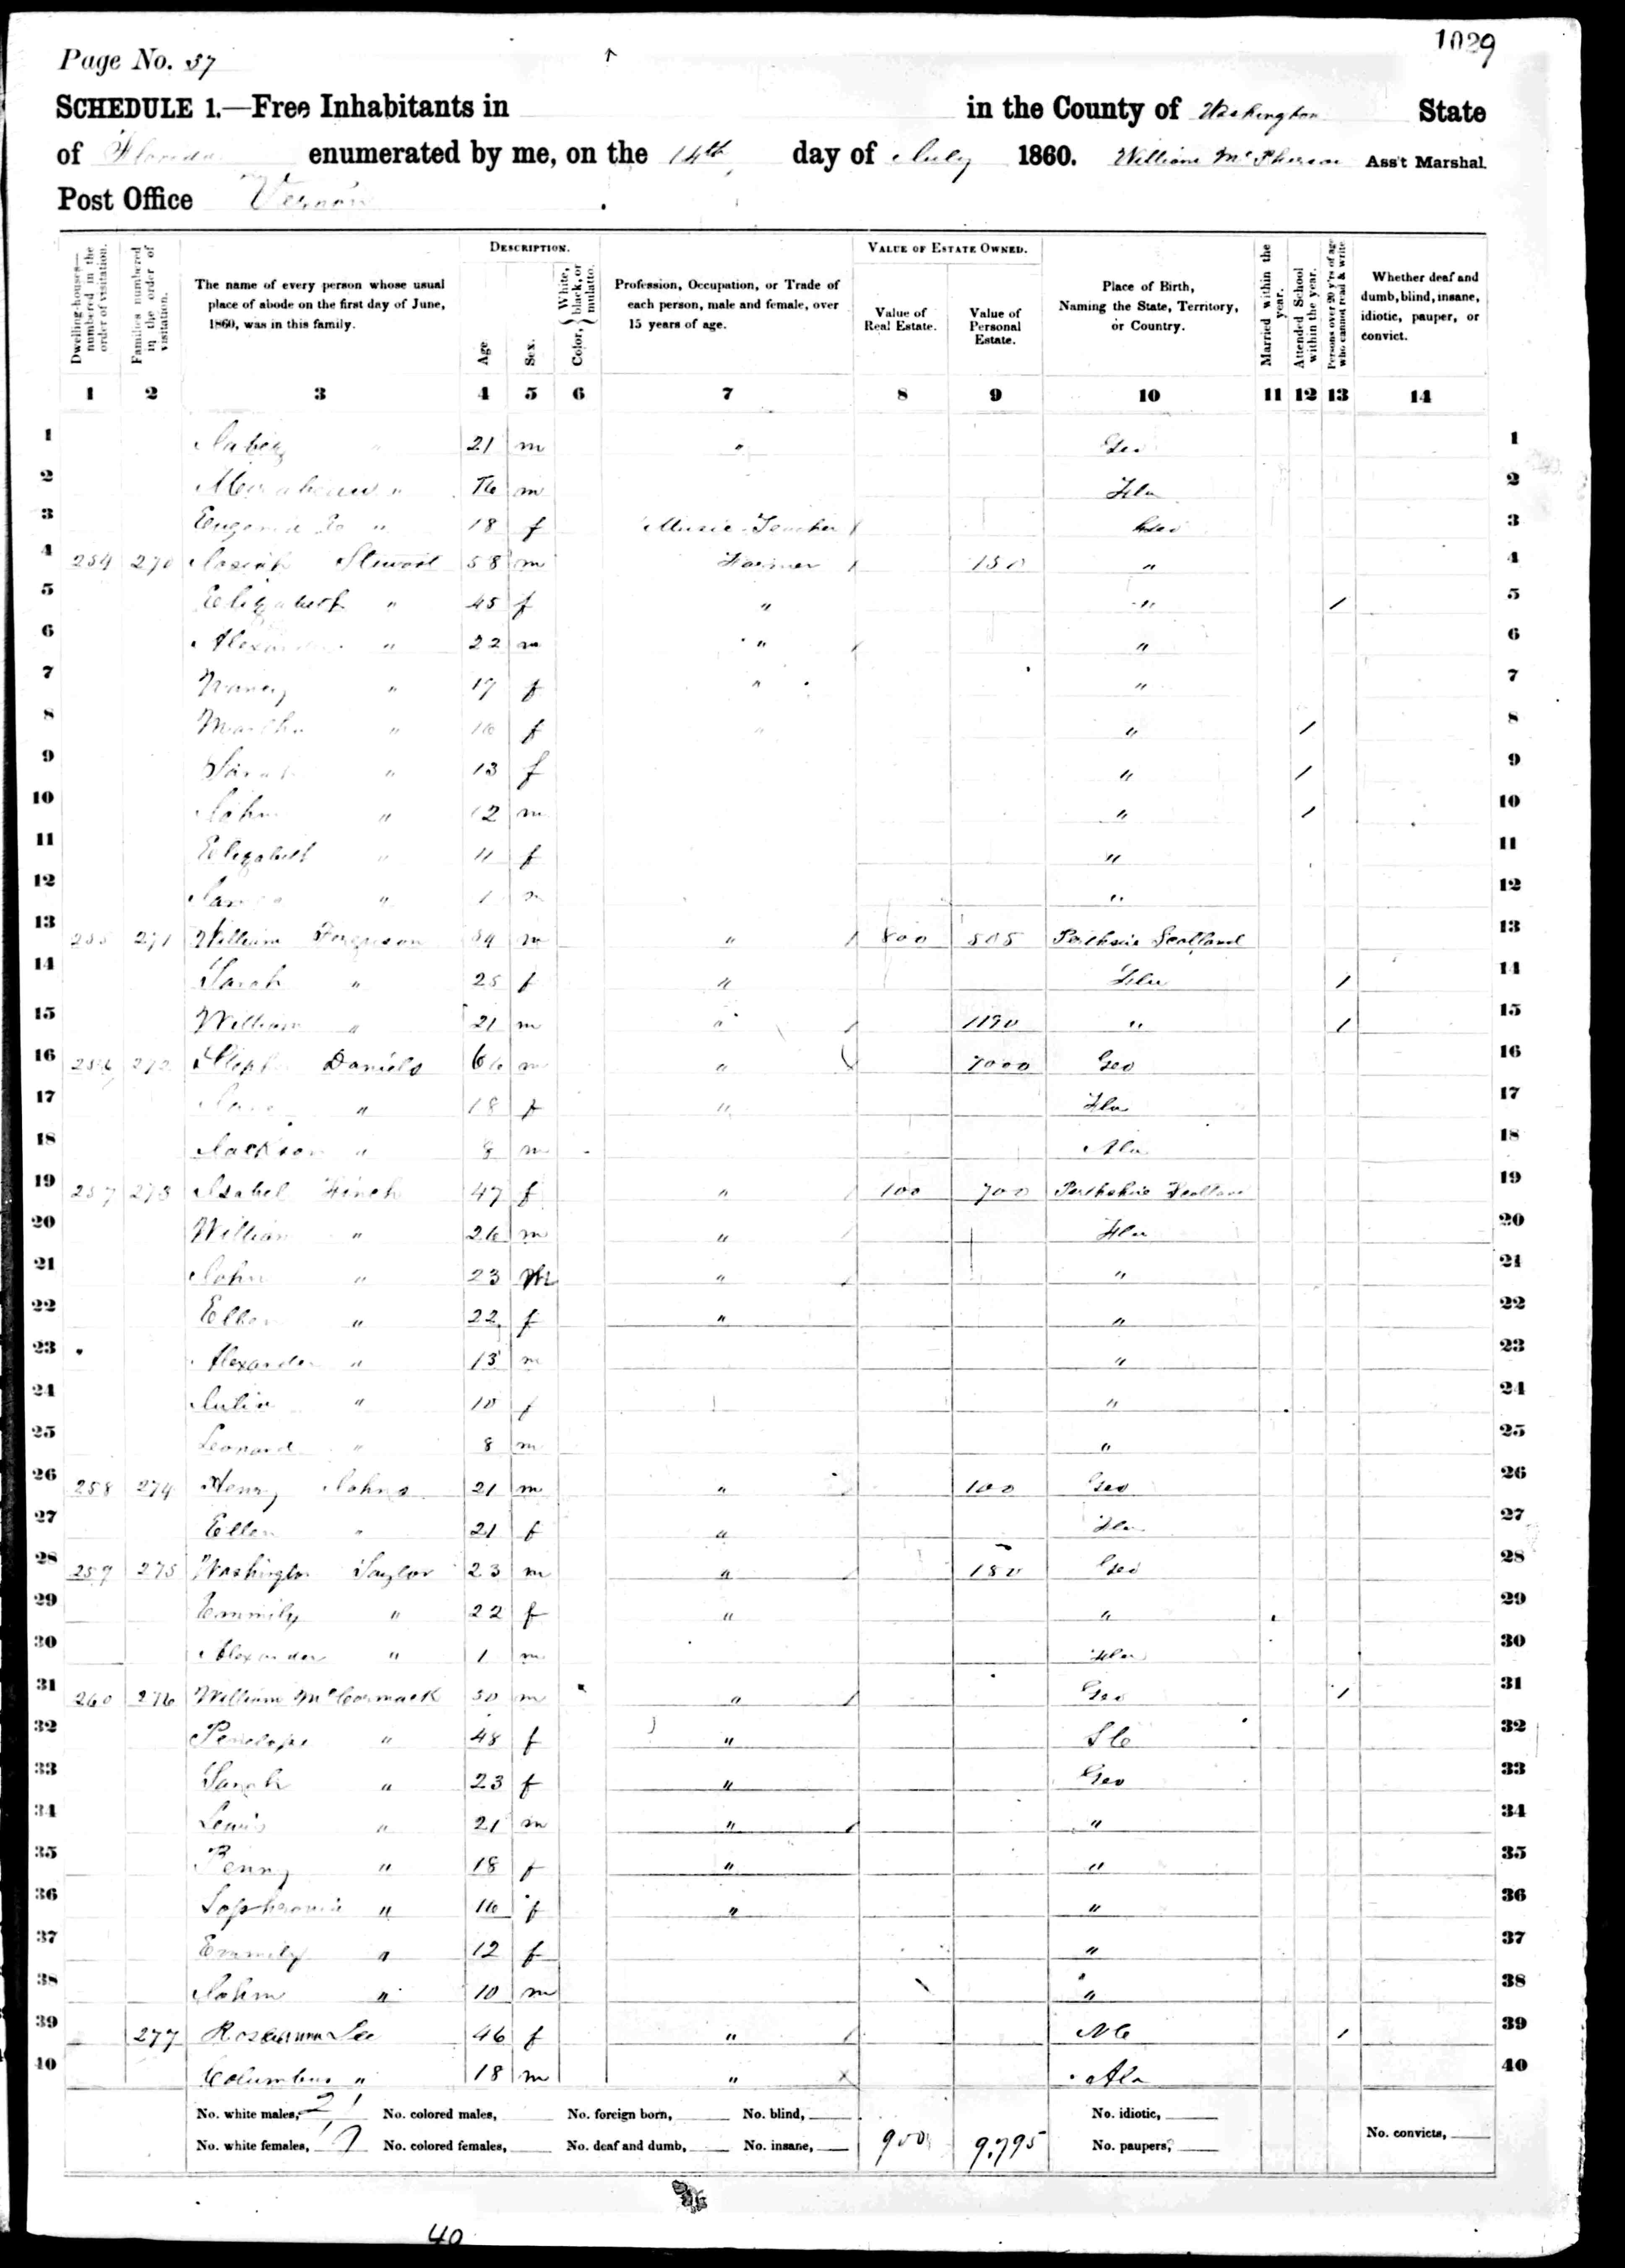 1029
Page No. 37
SCHEDULE 1.—Free Inhabitants in in the County of Washington State
of Florida enumerated by me, on the 14th day of July 1860. William McPherson Ass't Marshal.
Post Office Vernon
Dwelling-houses—numbered in the order of visitation.
Families numbered in the order of visitation.
The name of every person whose usual place of abode on the first day of June, 1860, was in this family.
DESCRIPTION.
Age
Sex.
Color, { White, black, or mulatto.
Profession, Occupation, or Trade of each person, male and female, over 15 years of age.
VALUE OF ESTATE OWNED.
Value of Real Estate.
Value of Personal Estate.
Place of Birth, Naming the State, Territory, or Country.
Married within the year.
Attended School within the year.
Persons over 20 y'rs of age who cannot read & write
Whether deaf and dumb, blind, insane, idiotic, pauper, or convict.
1 2 3 4 5 6 7 8 9 10 11 12 13 14
1 " 21 m " Geo 1
2 " m Fla 2
3 " 18 f Music Teacher Geo 3
4 254 270 Josiah Stewart 58 m Farmer 150 " 4
5 Elizabeth " 45 f " " / 5
6 Alexander " 22 m " " 6
7 Nancy " 17 f " " 7
8 Martha " 16 f " " / 8
9 Sarah " 13 f " / 9
10 John " 12 m " / 10
11 Elizabeth " 11 f " 11
12 James " 1 m " 12
13 255 271 William 54 m " 800 505 Scotland 13
14 Sarah " 25 f " Fla / 14
15 William " 21 m " 1190 " / 15
16 256 272 Daniels m " 7000 Geo 16
17 " 18 f " Fla 17
18 Jackson " 8 m Ala 18
19 257 273 Isabel Finch 47 f " 100 700 Perthshire Scotland 19
20 William " 26 m " Fla 20
21 John " 23 m " " 21
22 Ellen " 22 f " " 22
23 Alexander " 13 m " 23
24 Julia " 10 f " 24
25 Leonard " 8 m " 25
26 258 274 Henry Johns 21 m " 100 Geo 26
27 Ellen " 21 f " Fla 27
28 259 275 Washington Taylor 23 m " 150 Geo 28
29 Emmily " 22 f " " 29
30 Alexander " 1 m Fla 30
31 260 276 William McCormack 50 m " Geo / 31
32 Penelope " 48 f " 32
33 Sarah " 23 f " Geo 33
34 Lewis " 21 m " " 34
35 Penny " 18 f " " 35
36 Sophronia " 16 f " " 36
37 Emmily " 12 f " 37
38 John " 10 m " 38
39 277 Roseanna Lee 46 f " NC / 39
40 Columbus " 18 m " Ala 40
No. white males, 21 No. colored males, No. foreign born, No. blind, No. idiotic,
No. white females, No. colored females, No. deaf and dumb, No. insane, 900 9.795 No. paupers, No. convicts,
40